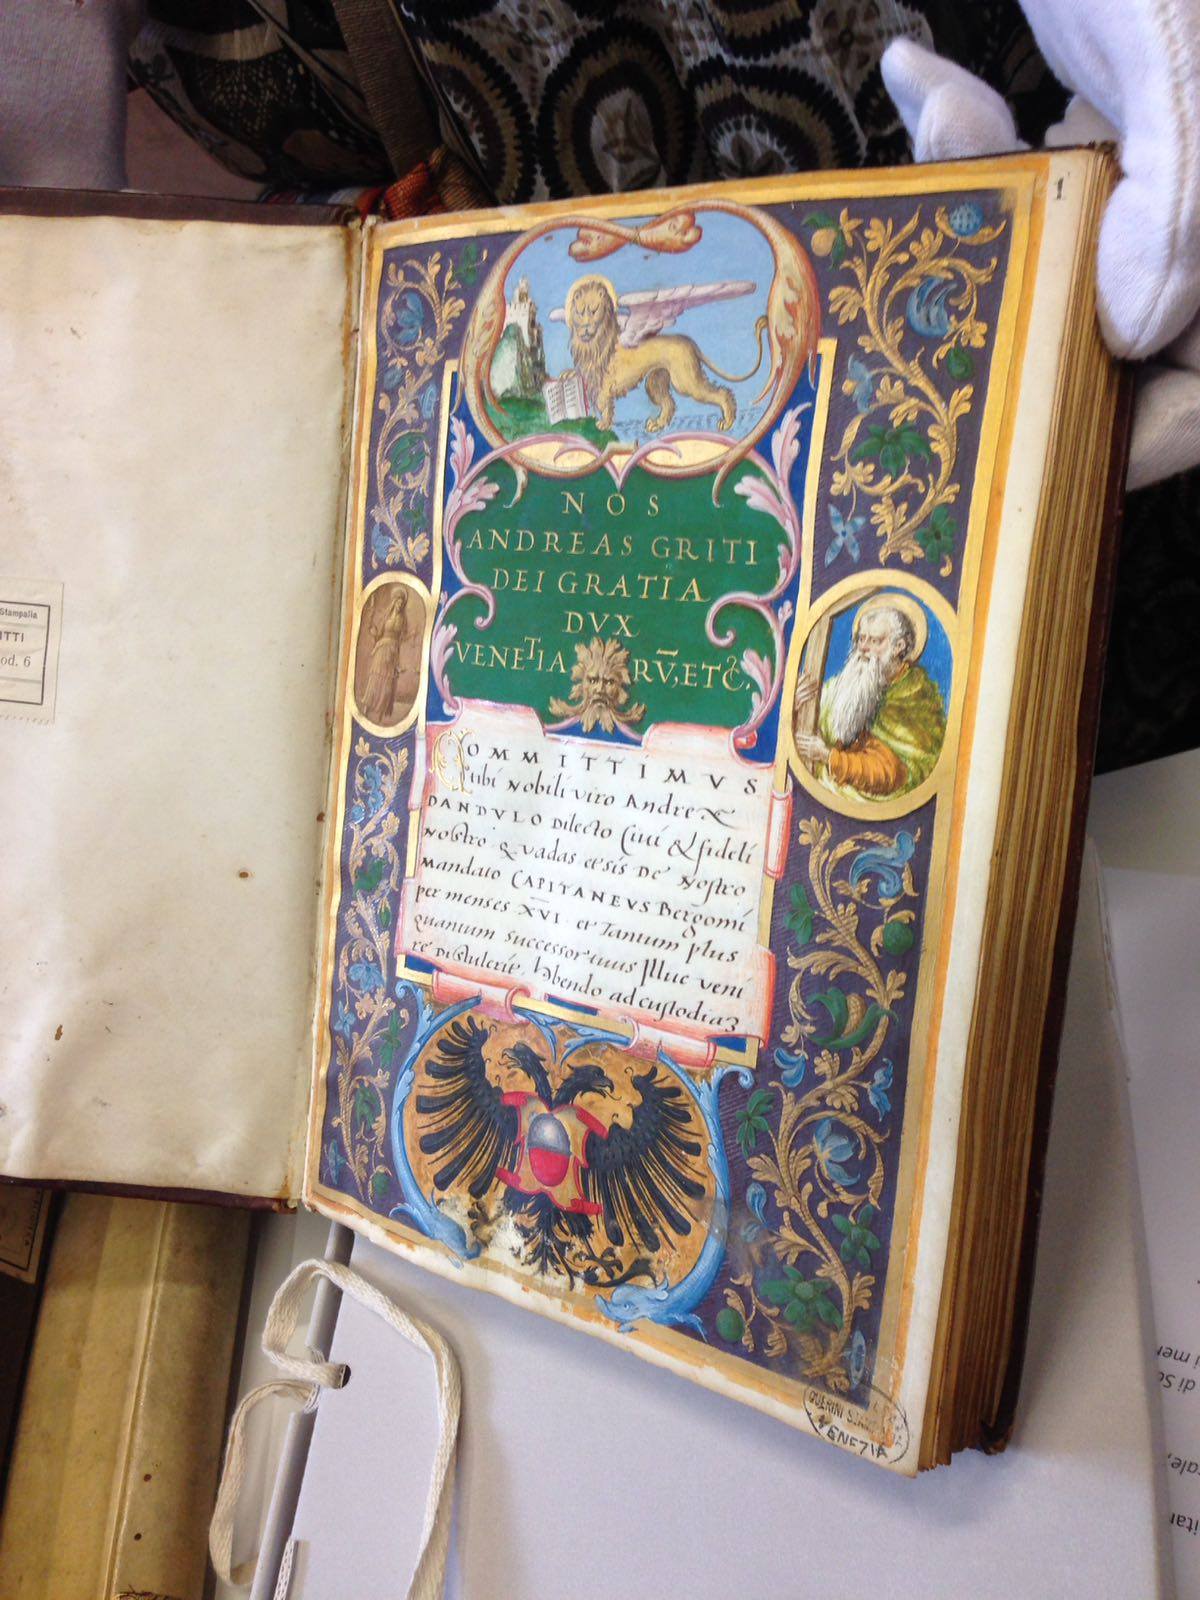 Stampalia
ITTI
od. 6
1
NOS
ANDREAS GRITI
DEI GRATIA
DVX
VENETIA RV̄, ETC.
COMMITTIMVS
tibi Nobili viro Andreæ
DANDVLO Dilecto Ciui & fideli
Nostro Quadas et sis De Nostro
Mandato CAPITANEVS Bergomi
per menses XVI et Tantum plus
quantum successor tuus Illuc veni
re Distulerit, hbendo ad custodia3
QUERINI STAMPALIA
VENEZIA
i mer
di Sc
ale,
itar